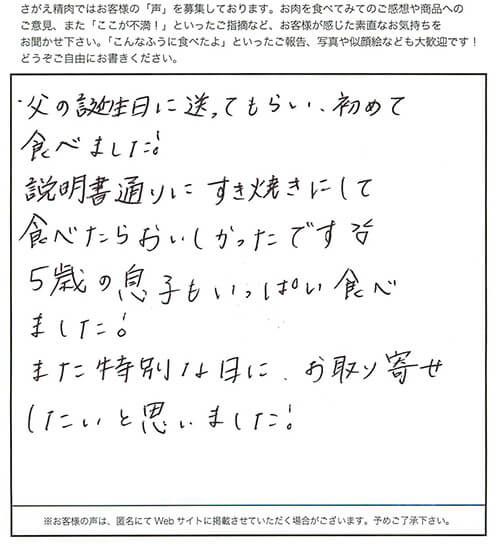 さがえ精肉ではお客様の「声」を募集しております。お肉を食べてみてのご感想や商品への
ご意見、また「ここが不満！」といったご指摘など、お客様が感じた素直なお気持ちを
お聞かせ下さい。「こんなふうに食べたよ」といったご報告、写真や似顔絵なども大歓迎です！
どうぞご自由にお書きください。
父の誕生日に送ってもらい、初めて
食べました!
説明書通りに すき焼きにして
食べたらおいしかったです
5歳の息子もいっぱい食べ
ました!
また特別な日に、お取り寄せ
したいと思いました!
※お客様の声は、匿名にてWebサイトに掲載させていただく場合がございます。予めご了承下さい。